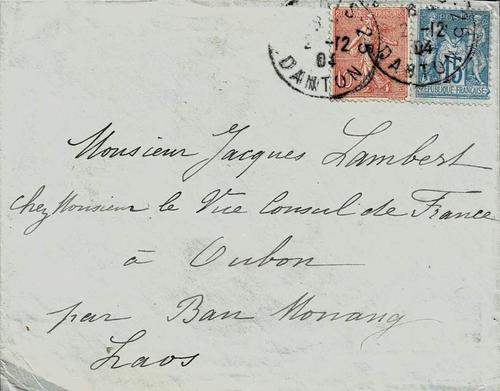 25
-12
04
DANTON
-12
04
DANTON
15
REPUBLIQUE FRANCAISE
Monsieur Jacques Lambert
chez Monsieur le Vice Consul de France
à Oubon
par Ban Mouang
Laos